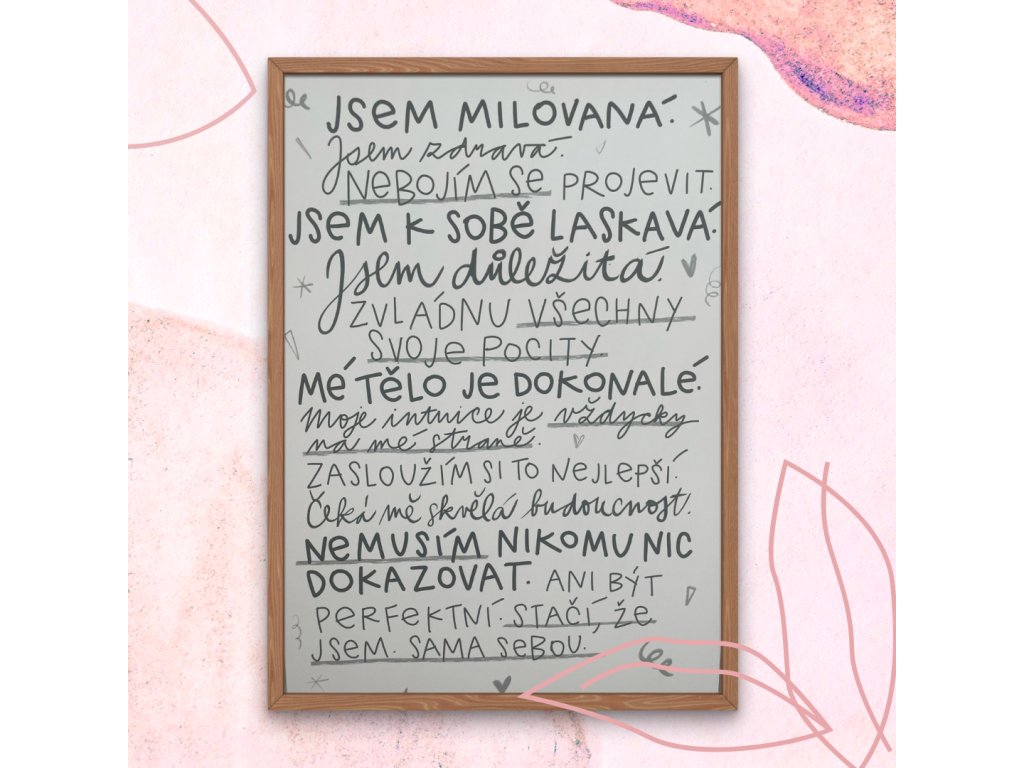 JSEM MILOVANÁ.
Jsem zdravá.
NEBOJÍM SE PROJEVIT.
JSEM K SOBĚ LASKAVÁ.
Jsem důležitá.
ZVLÁDNU VŠECHNY
SVOJE POCITY
MÉ TĚLO JE DOKONALÉ.
Moje intuice je vždycky
na mé straně.
ZASLOUŽÍM SI TO NEJLEPŠÍ.
Čeká mě skvělá budoucnost.
NEMUSÍM NIKOMU NIC
DOKAZOVAT. ANI BÝT
PERFEKTNÍ. STAČÍ, ŽE
JSEM. SAMA SEBOU.